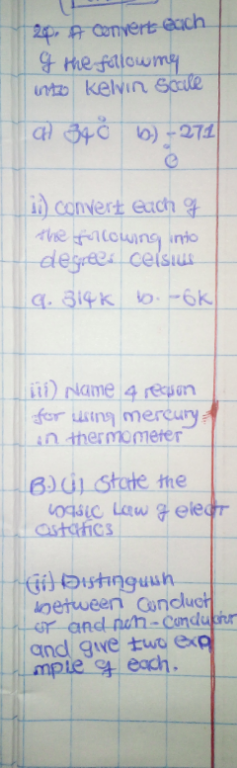 24. A convert each
of the following
into kelvin scale
a) 34°C b) -271
°C
ii) convert each of
the following into
degrees celsius
a. 314K b. -6K
iii) Name 4 reason
for using mercury
in thermometer
B.) (i) State the
basic Law of electr
ostatics
(ii) Distinguish
between Conduct
or and non-conductor
and give two exa
mple of each.